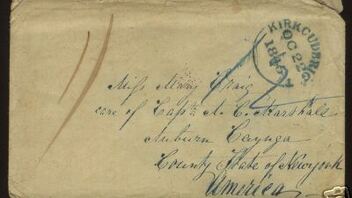 KIRKCUDBRIGHT
OC 22
1845
Miss Mary Craig
care of Captn A. C. Marshale
Auburn Cayuga
County State of Newyork
America